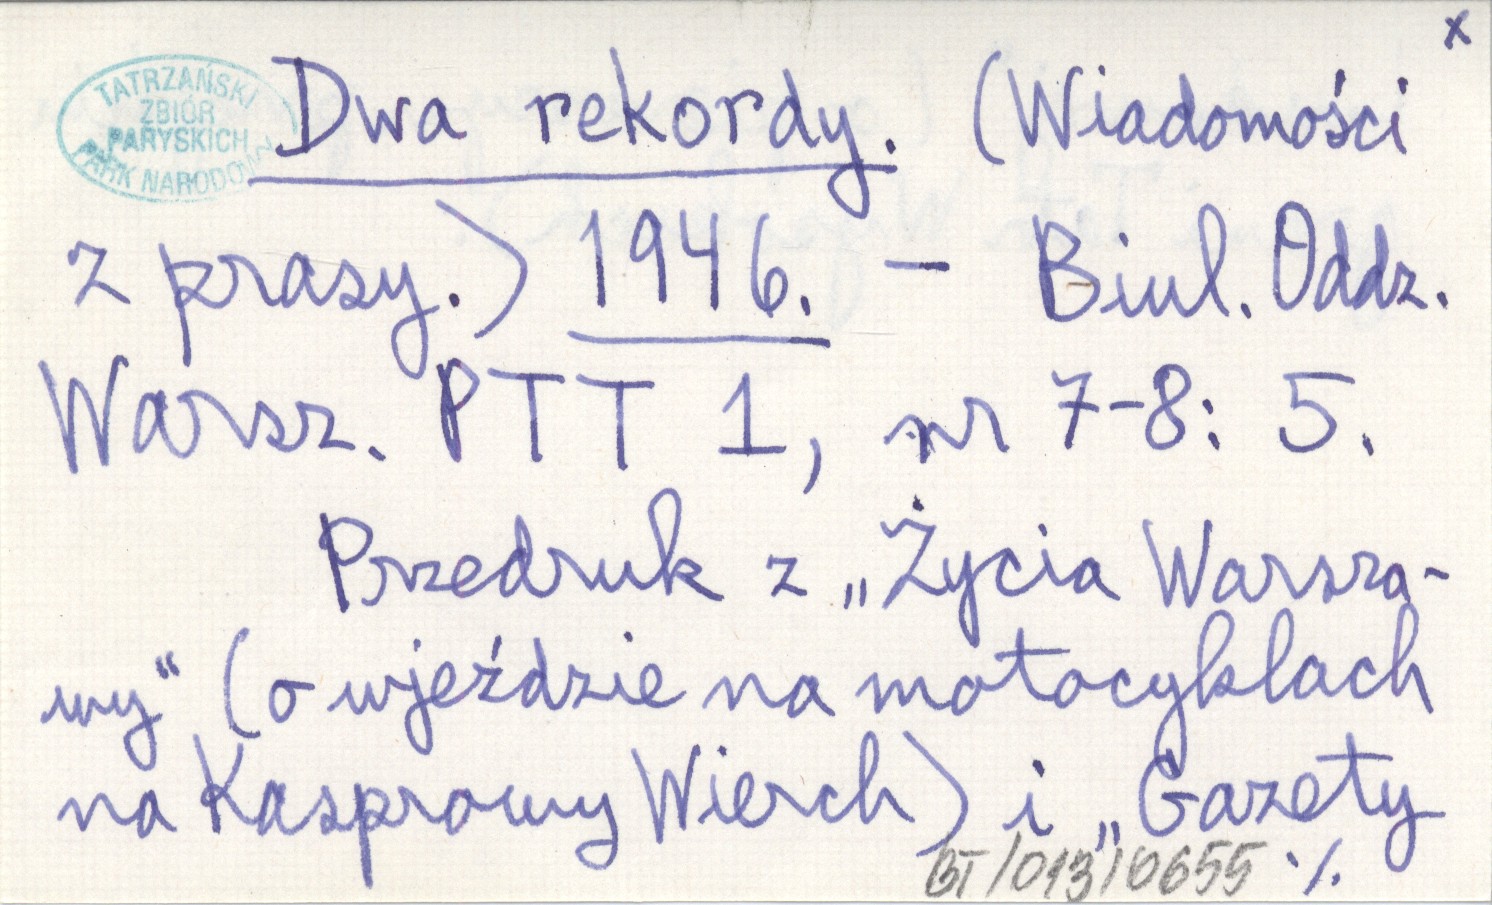 x
TATRZAŃSKI
ZBIÓR
PARYSKICH
PARK NARODOWY
Dwa rekordy. (Wiadomości
z prasy.) 1946. – Biul. Oddz.
Warsz. PTT 1, nr 7-8: 5.
Przedruk z „Życia Warsza-
wy“ (o wjeździe na motocyklach
na Kasprowy Wierch) i „Gazety
BT/013/0655 ·/.